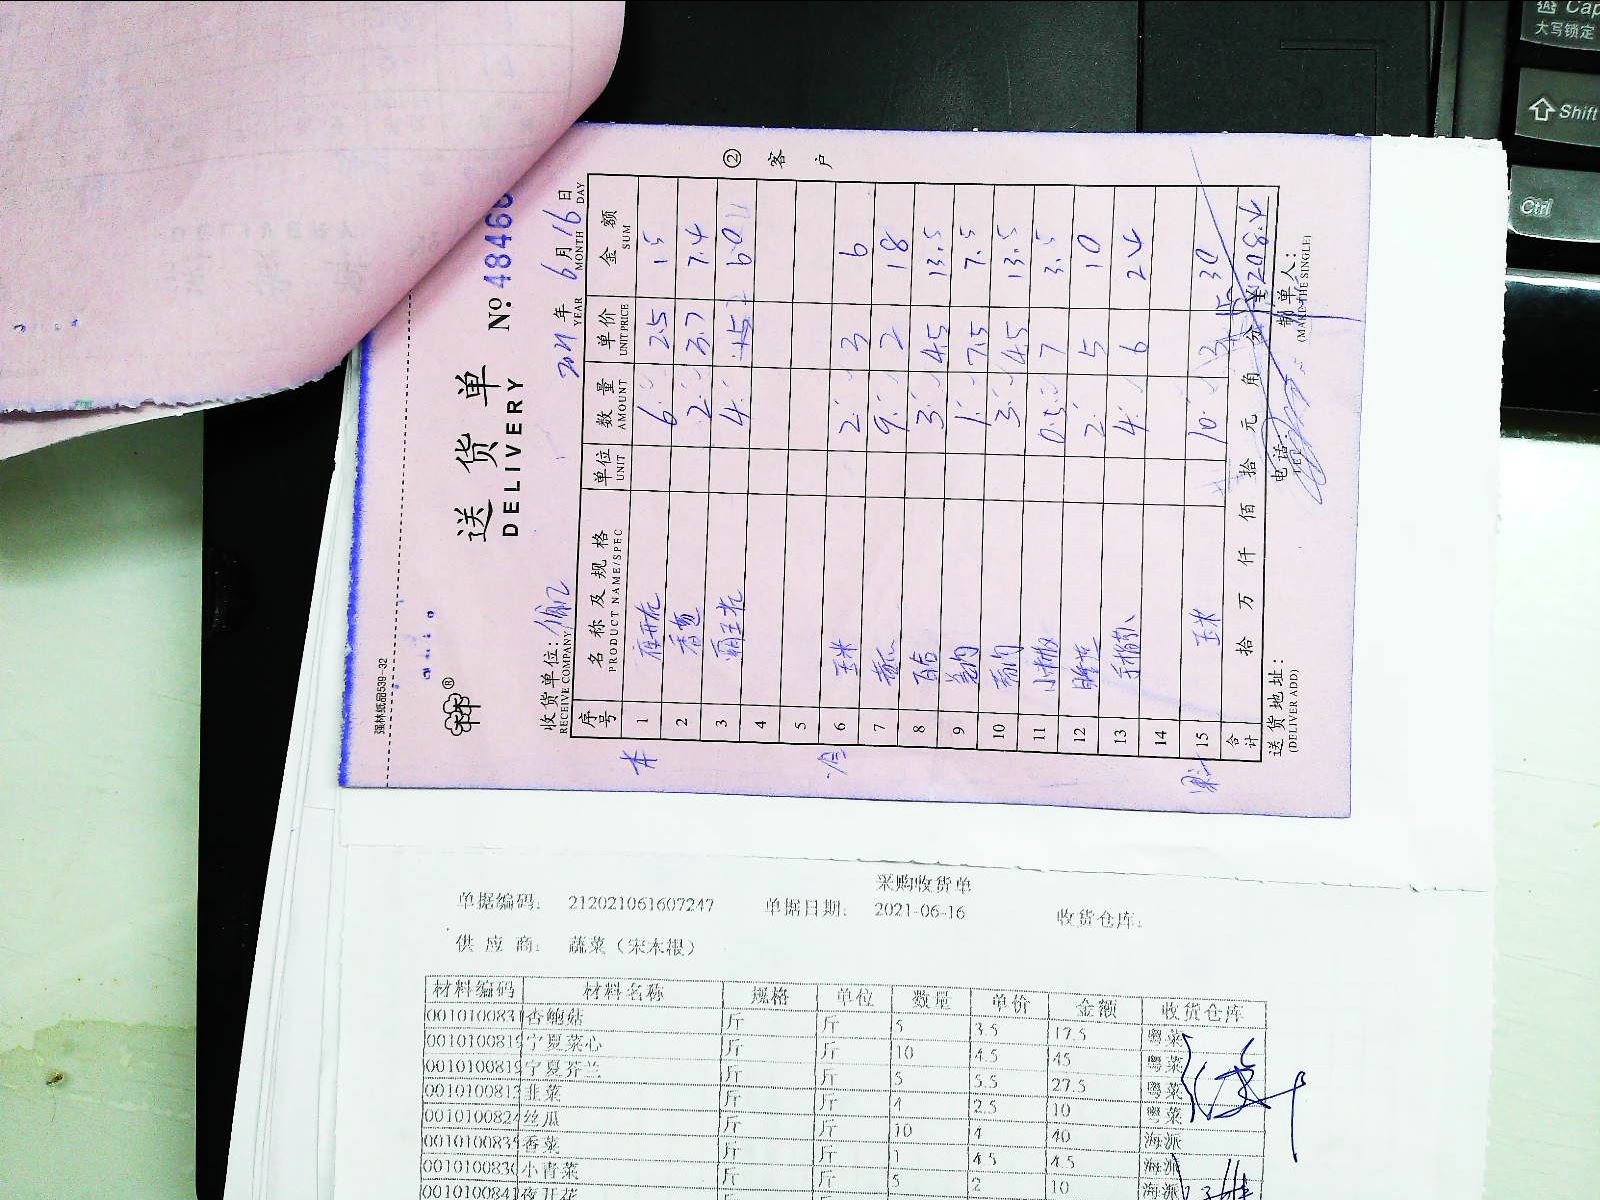 强林纸品539-32
送货单
DELIVERY
No. 48466
收货单位:
RECEIVE COMPANY
2021年6月16日
YEAR MONTH DAY
② 客户
序号 名称及规格 单位 数量 单价 金额
PRODUCT NAME/SPEC UNIT AMOUNT UNIT PRICE SUM
1 夜开花 6 2.5 15
2 2 3.7 7.4
3 4 15 60
4
5
6 玉米 2 3 6
7 黄瓜 9 2 18
8 百合 3 4.5 13.5
9 1 7.5 7.5
10 3 4.5 13.5
11 小米椒 0.5 7 3.5
12 2 5 10
13 4 6 24
14
15 玉米 10 3 30
合计 拾 万 仟 佰 拾 元 角 分 ¥208.4
送货地址:
(DELIVER ADD)
电话:
制单人:
(MAKE THE SINGLE)
采购收货单
单据编码: 212021061607247 单据日期: 2021-06-16 收货仓库:
供应商: 蔬菜(宋本根)
材料编码 材料名称 规格 单位 数量 单价 金额 收货仓库
0010100831 杏鲍菇 斤 斤 5 3.5 17.5 粤菜
001010081 宁夏菜心 斤 斤 10 4.5 45 粤菜
001010081 宁夏芥兰 斤 斤 5 5.5 27.5 粤菜
001010081 韭菜 斤 斤 4 2.5 10 粤菜
001010082 丝瓜 斤 斤 10 4 40 海派
001010083 香菜 斤 斤 1 4.5 4.5 海派
001010083 小青菜 斤 斤 5 2 10 海派
001010084 夜开花
Cap
大写锁定
Shift
Ctrl